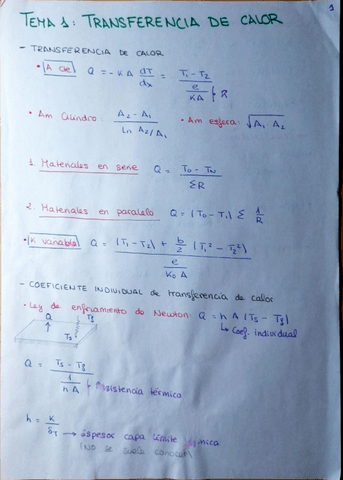 1
TEMA 1: TRANSFERENCIA DE CALOR
- TRANSFERENCIA DE CALOR
• A cte Q = -KA dT/dx = (T1 - T2) / (e/KA) } R
• Am Cilindro: (A2 - A1) / (Ln A2/A1) • Am esfera: √(A1 · A2)
1. Materiales en serie Q = (T0 - TN) / ΣR
2. Materiales en paralelo Q = (T0 - T1) Σ 1/R
• K variable Q = ((T1 - T2) + b/2 (T1² - T2²)) / (e / K0 A)
- COEFICIENTE INDIVIDUAL de transferencia de calor
• Ley de enfriamiento de Newton: Q = h A (Ts - Tf)
↳ Coef. individual
Q Tf
Ts
Q = (Ts - Tf) / (1/hA) } Resistencia térmica
h = K/δT → espesor capa límite térmica
(No se suele conocer)